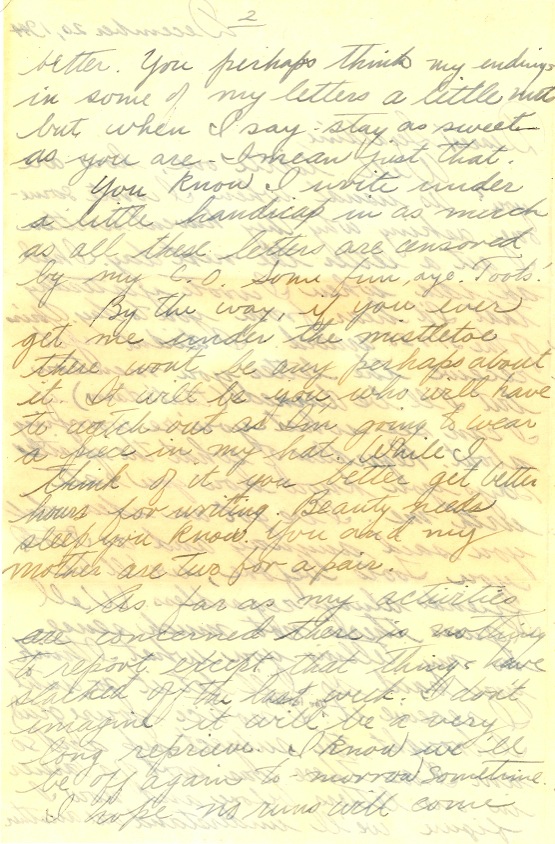 2
better. You perhaps think my endings
in some of my letters a little
but when I say - stay as sweet
as you are - I mean just that.
You know I write under
a little handicap in as much
as all these letters are censored
by my C.O. Some fun, aye. Toots!
By the way, if you ever
get me under the mistletoe
there wont be any perhaps about
it. It will be you who will have
to watch out as I'm going to wear
a piece in my hat. While I
think of it you better get better
hours for writing. Beauty needs
sleep you know. You and my
mother are two for a pair.
As far as my activities
are concerned there is nothing
to report except that things have
slacked off the last week. I don't
imagine it will be a very
long reprieve. I know we'll
be off again to-morrow sometime.
I hope no runs will come